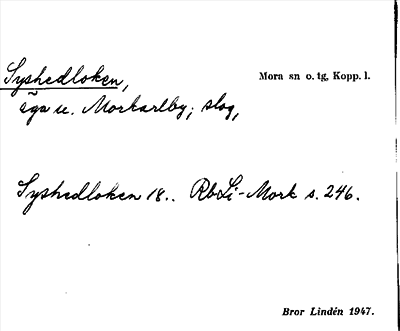 Syshedloken, Mora sn o. tg, Kopp. l.
äga u. Morkarlby; slog,
Syshedloken 18.. RbLi-Mork s. 246.
Bror Lindén 1947.